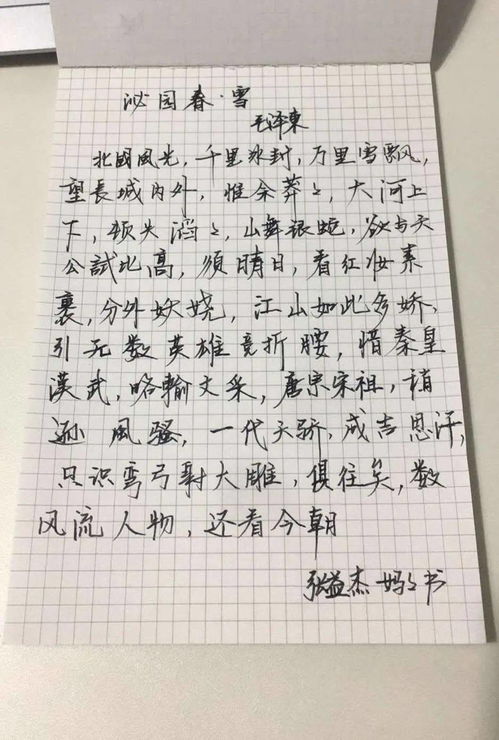 沁园春·雪
毛泽東
北國風光，千里冰封，万里雪飘，
望長城内外，惟余莽々，大河上
下，顿失滔々，山舞银蛇，欲与天
公試比高，须晴日，看红妆素
裹，分外妖娆，江山如此多娇，
引无数英雄竞折腰，惜秦皇
漢武，略輸文采，唐宗宋祖，稍
逊風骚，一代天骄，成吉思汗，
只识弯弓射大雕，俱往矣，数
风流人物，还看今朝
张益杰妈々书